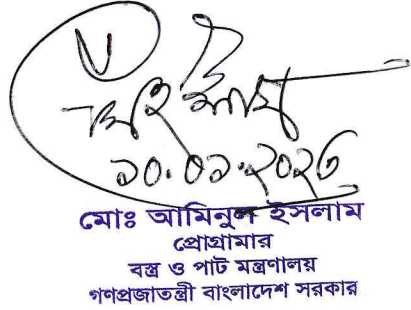 ১০.০১.২০২৩
মোঃ আমিনুল ইসলাম
প্রোগ্রামার
বস্ত্র ও পাট মন্ত্রণালয়
গণপ্রজাতন্ত্রী বাংলাদেশ সরকার